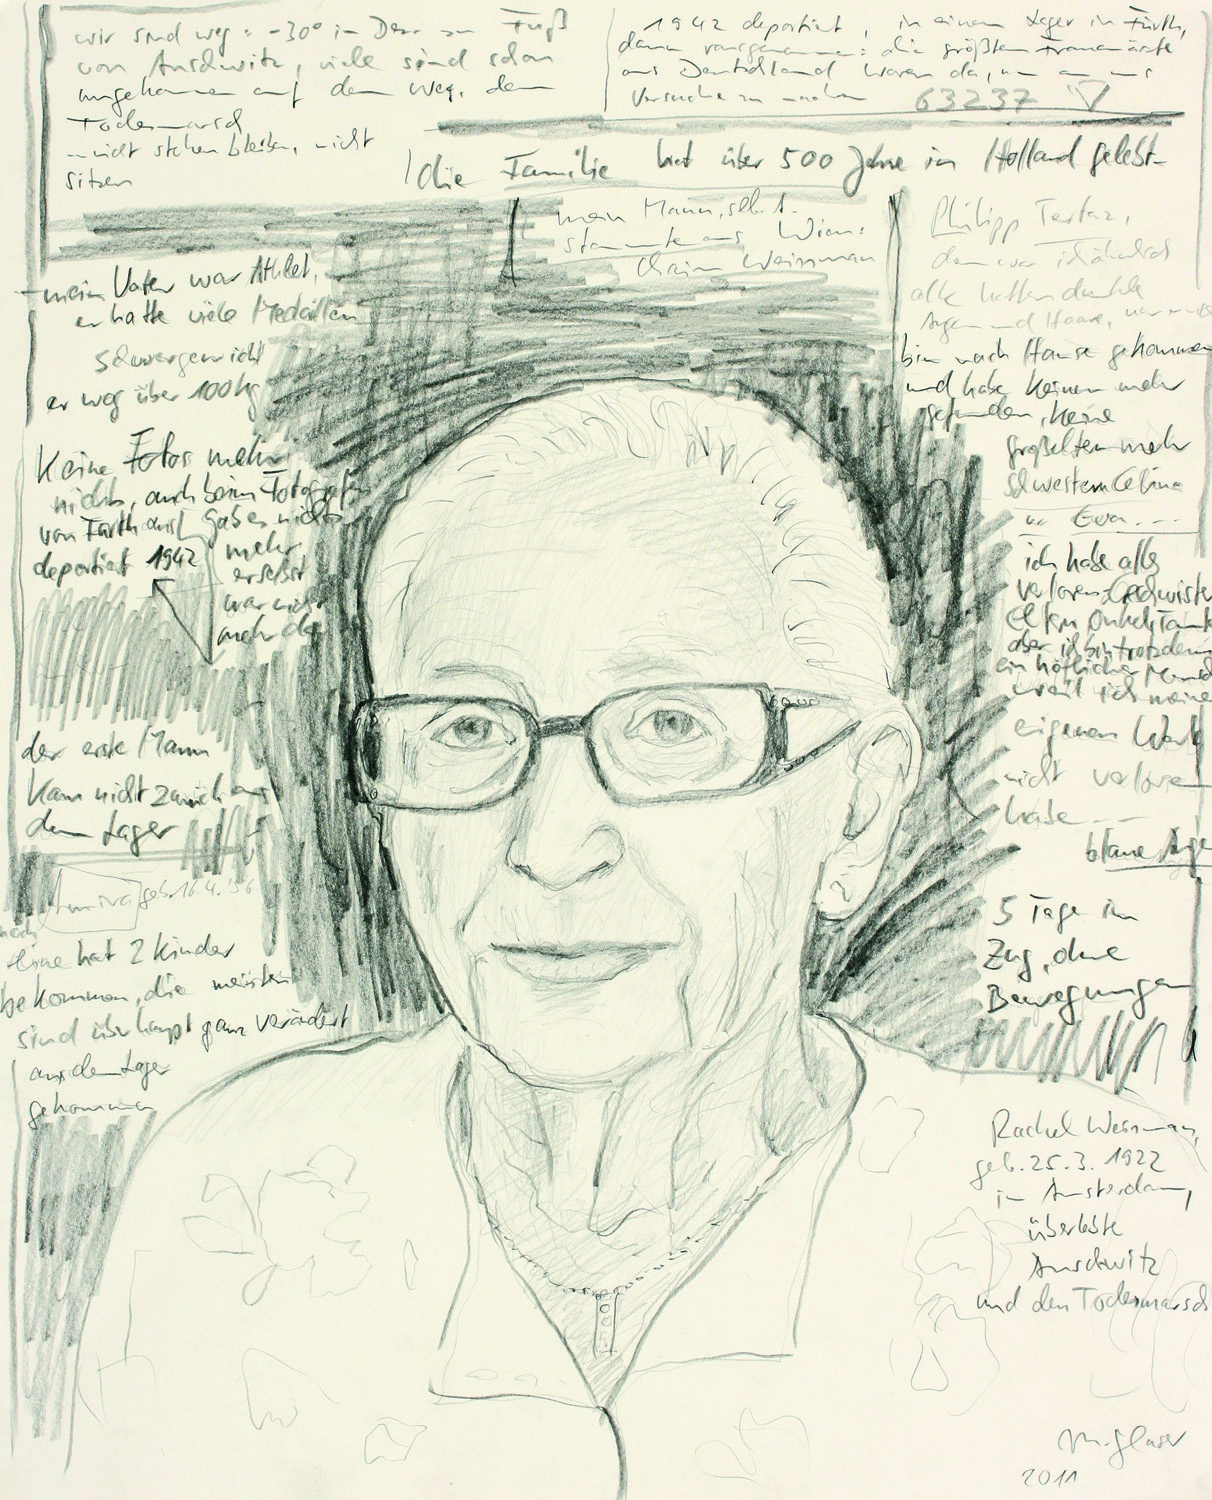 wir sind weg : -30° im Dez. zu Fuß
von Auschwitz, viele sind schon
umgekommen auf dem Weg, dem
Todesmarsch
nicht stehen bleiben, nicht
sitzen
1942 deportiert, in einem Lager in Fürth,
dann rausgenommen: die größten Frauenärzte
aus Deutschland waren da, um an uns
Versuche zu machen 63237
die Familie hat über 500 Jahre in Holland gelebt
mein Mann, selbst
stammte aus Wien:
Chaim Weissman
mein Vater war Athlet,
er hatte viele Medaillen
Schwergewicht
er wog über 100 kg
Keine Fotos mehr,
nichts, auch beim Fotografen
von Fürth aus gab es nichts
deportiert 1942
mehr,
er selbst
war nicht
mehr da
der erste Mann
kam nicht zurück aus
dem Lager
geb. 16.4.
eine hat 2 Kinder
bekommen, die meisten
sind überhaupt ganz verändert
aus dem Lager
gekommen
Philipp
alle hatten dunkle
Augen und Haare, nur
bin nach Hause gekommen
und habe keinen mehr
gefunden, keine
Großeltern mehr
Schwestern Celina
u. Eva ...
ich habe alles
verloren, Geschwister
Eltern, Onkel, Tante
aber ich bin trotzdem
ein höflicher Mensch
weil ich meine
eigenen Werte
nicht verloren
habe ...
blaue Augen
5 Tage im
Zug, ohne
Bewegungen
Rachel Weissman,
geb. 25.3.1922
in Amsterdam,
überlebte
Auschwitz
und den Todesmarsch
M. Glaser
2011